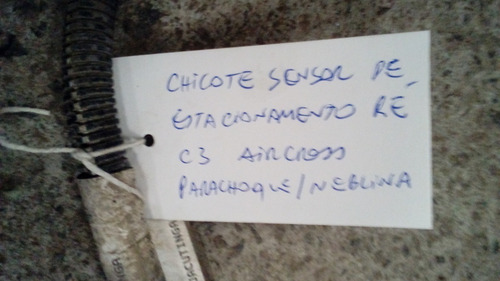 CHICOTE SENSOR DE
ESTACIONAMENTO RÉ
C3 AIRCROSS
PARACHOQUE/NEBLINA